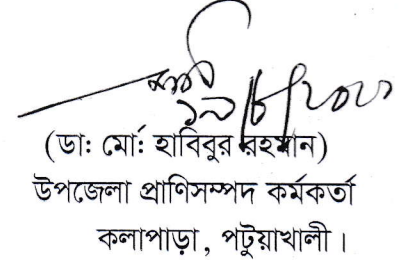 (ডা: মো: হাবিবুর রহমান)
উপজেলা প্রাণিসম্পদ কর্মকর্তা
কলাপাড়া, পটুয়াখালী।